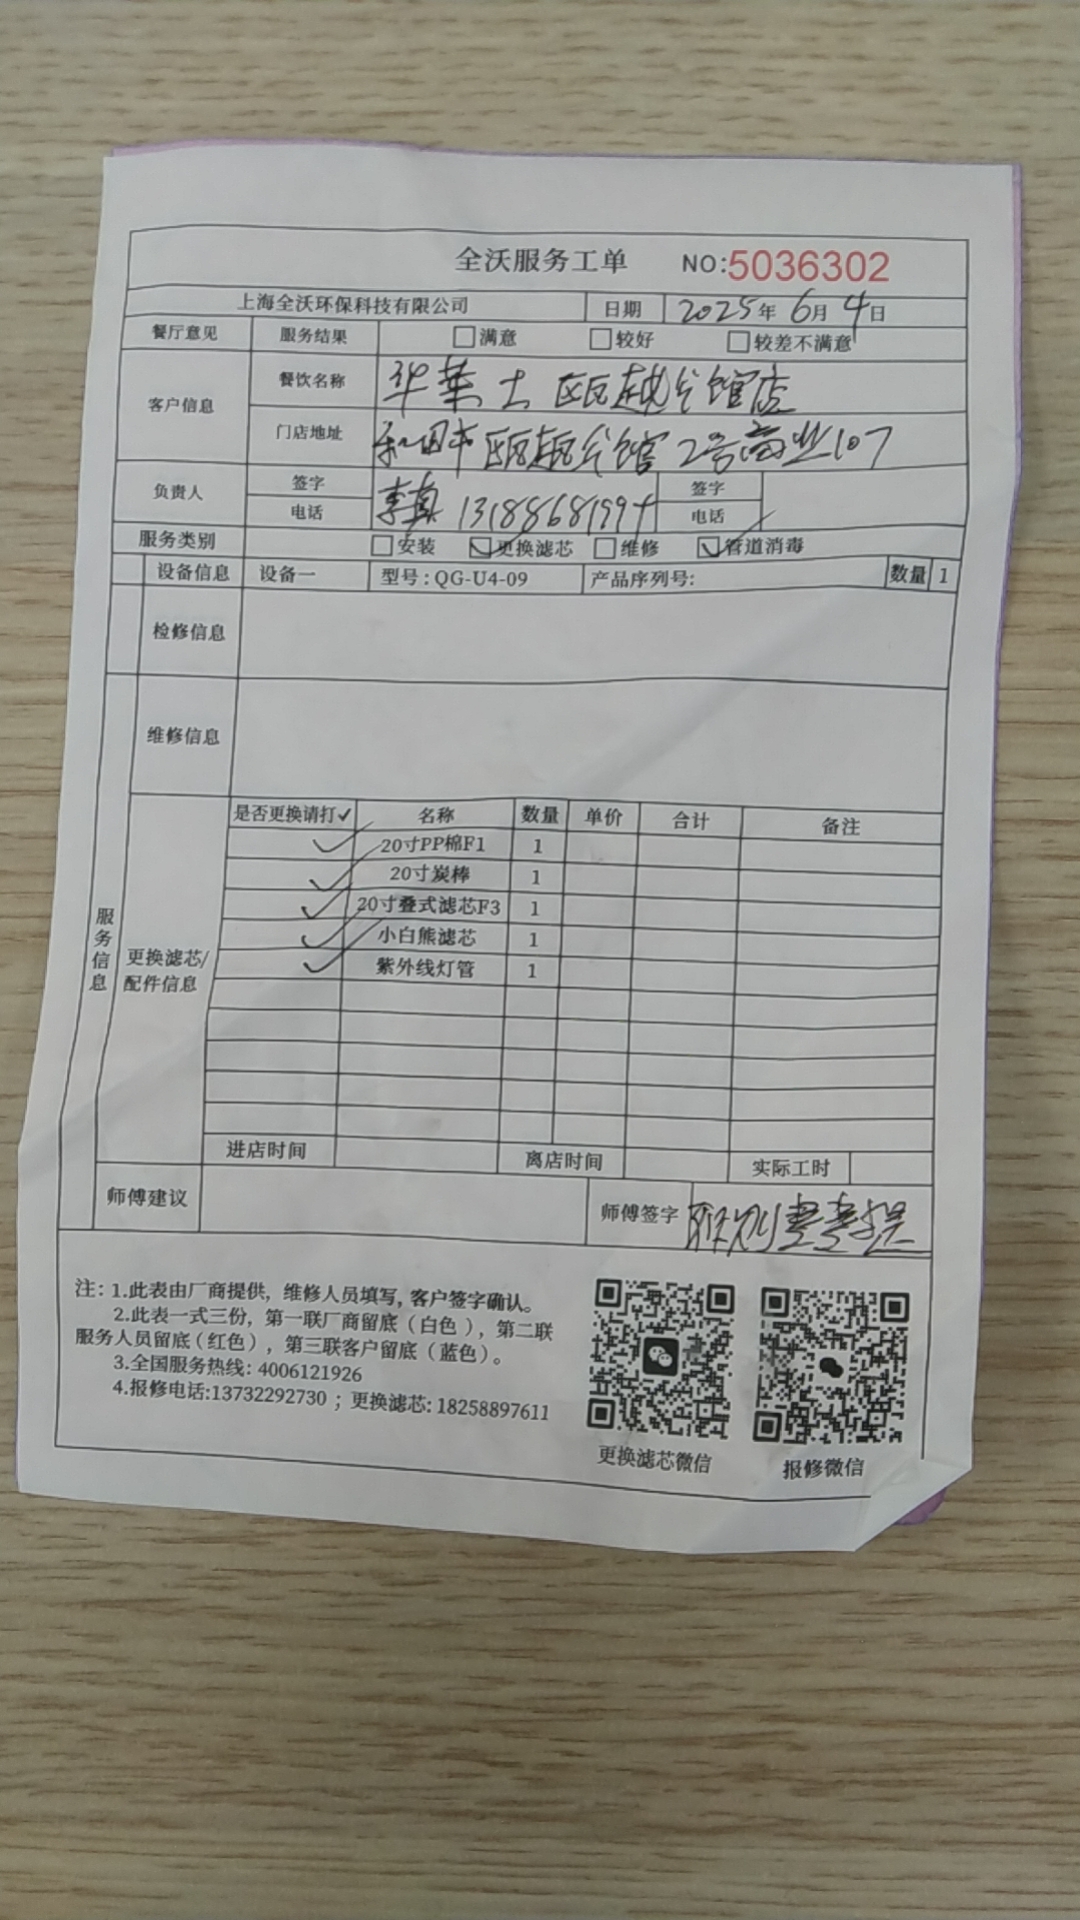 全沃服务工单 NO:5036302
上海全沃环保科技有限公司 日期 2025年 6月 4日
餐厅意见 服务结果 □满意 □较好 □较差不满意
客户信息 餐饮名称 华莱士 瓯越公馆店
门店地址 和田市瓯越公馆2号商业107
负责人 签字 李真 签字
电话 电话
服务类别 □安装 ☑更换滤芯 □维修 ☑管道消毒
设备信息 设备一 型号:QG-U4-09 产品序列号: 数量 1
检修信息
维修信息
服务信息
更换滤芯/配件信息
是否更换请打✓ 名称 数量 单价 合计 备注
✓ 20寸PP棉F1 1
✓ 20寸炭棒 1
✓ 20寸叠式滤芯F3 1
✓ 小白熊滤芯 1
✓ 紫外线灯管 1
进店时间 离店时间 实际工时
师傅建议 师傅签字
注：1.此表由厂商提供，维修人员填写，客户签字确认。
2.此表一式三份，第一联厂商留底（白色），第二联
服务人员留底（红色），第三联客户留底（蓝色）。
3.全国服务热线: 4006121926
4.报修电话:13732292730 ；更换滤芯: 18258897611
更换滤芯微信 报修微信